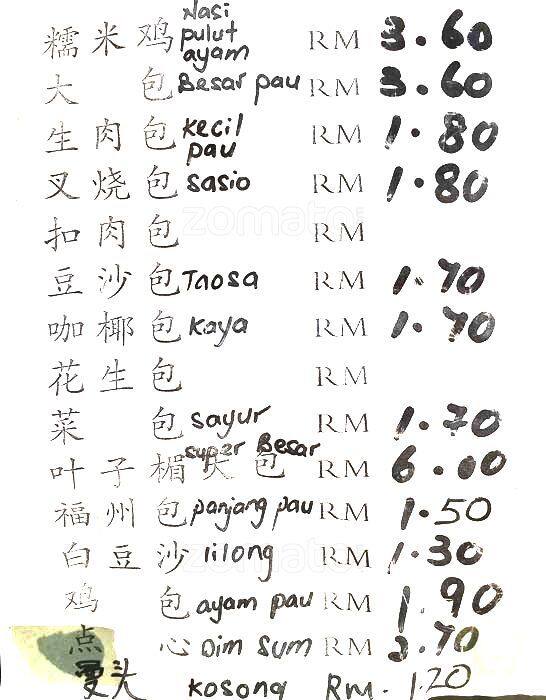 糯米鸡 Nasi pulut ayam RM 3.60
大包 Besar pau RM 3.60
生肉包 kecil pau RM 1.80
叉烧包 sasio RM 1.80
扣肉包 RM
豆沙包 Taosa RM 1.70
咖椰包 kaya RM 1.70
花生包 RM
菜包 sayur RM 1.70
叶子楣大包 super Besar RM 6.00
福州包 panjang pau RM 1.50
白豆沙 lilong RM 1.30
鸡包 ayam pau RM 1.90
点心 Dim Sum RM .70
头 kosong RM. 1.20
zomato
zomato